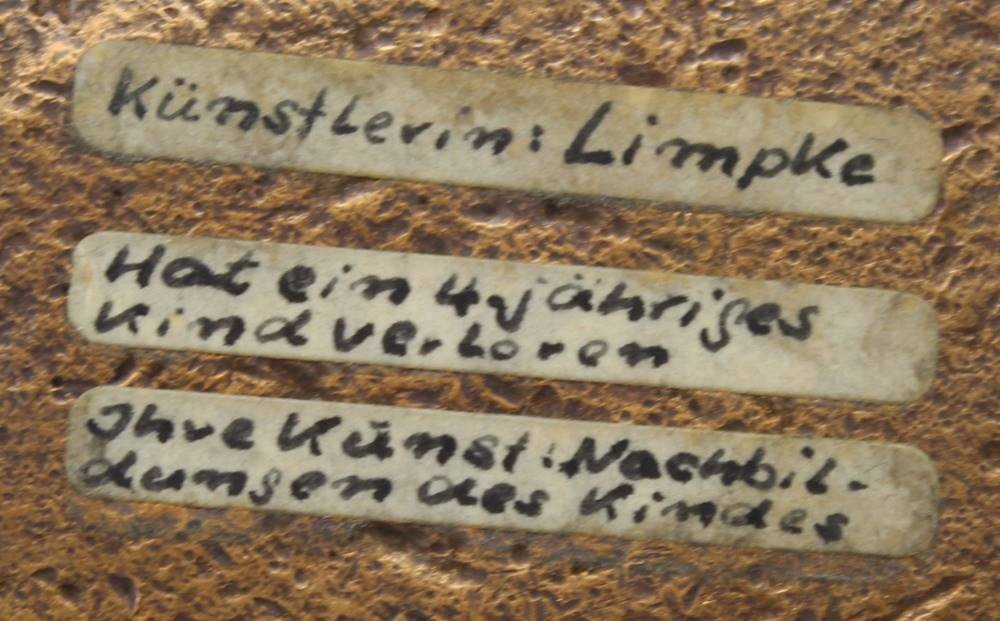 Künstlerin: Limpke
Hat ein 4-jähriges
Kind verloren
Ihre Künst: Nachbil-
dungen des Kindes